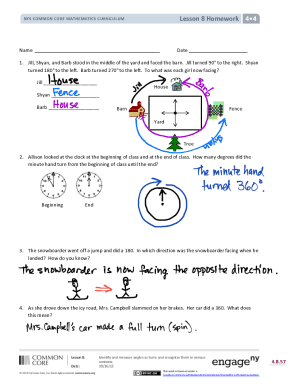 NYS COMMON CORE MATHEMATICS CURRICULUM
Lesson 8 Homework
4•4
Name
Date
1. Jill, Shyan, and Barb stood in the middle of the yard and faced the barn. Jill turned 90° to the right. Shyan
turned 180° to the left. Barb turned 270° to the left. To what was each girl now facing?
Jill House
Shyan Fence
Barb House
House
Barn
Fence
Yard
Tree
Jill
Barb
Shyan
2. Allison looked at the clock at the beginning of class and at the end of class. How many degrees did the
minute hand turn from the beginning of class until the end?
The minute hand
turned 360°.
Beginning
End
3. The snowboarder went off a jump and did a 180. In which direction was the snowboarder facing when he
landed? How do you know?
The snowboarder is now facing the opposite direction.
4. As she drove down the icy road, Mrs. Campbell slammed on her brakes. Her car did a 360. What does
this mean?
Mrs. Campbell's car made a full turn (spin).
COMMON
CORE
Lesson 8:
Date:
engage ny
4.B.57